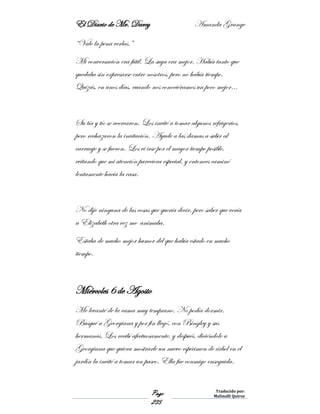 El Diario de Mr. Darcy Amanda Grange
“Vale la pena verlas.”
Mi conversación era fútil. La suya era mejor. Había tanto que
quedaba sin expresarse entre nosotros, pero no había tiempo.
Quizás, en unos días, cuando nos conociéramos un poco mejor…
Su tía y tío se acercaron. Los invité a tomar algunos refrigerios,
pero rechazaron la invitación. Ayudé a las damas a subir al
carruaje y se fueron. Los vi irse por el mayor tiempo posible,
evitando que mi atención pareciera especial, y entonces caminé
lentamente hacia la casa.
No dije ninguna de las cosas que quería decir, pero saber que vería
a Elizabeth otra vez me animaba.
Estaba de mucho mejor humor del que había estado en mucho
tiempo.
Miércoles 6 de Agosto
Me levanté de la cama muy temprano. No podía dormir.
Busqué a Georgiana y por fin llegó, con Bingley y sus
hermanas. Los recibí afectuosamente, y después, diciéndole a
Georgiana que quiera mostrarle un nuevo espécimen de árbol en el
jardín la invité a tomar un paseo. Ella fue conmigo enseguida.
Page
235
Traducido por:
Malinalli Quiroz